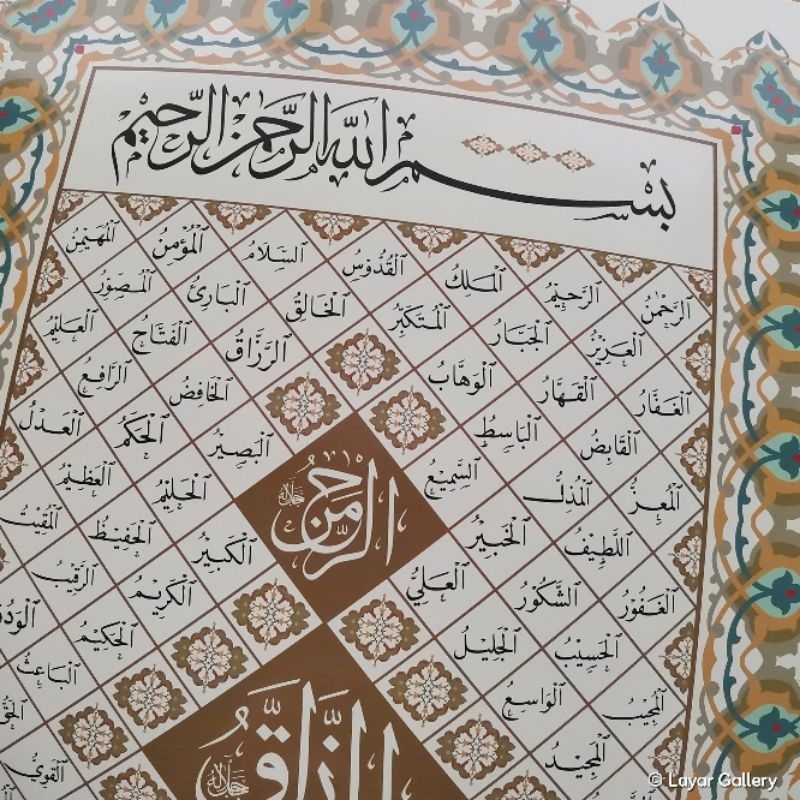 بِسْمِ اللَّهِ الرَّحْمَٰنِ الرَّحِيمِ
الرَّحْمٰنُ الرَّحِيمُ المَلِكُ القُدُّوسُ السَّلَامُ المُؤْمِنُ المُهَيْمِنُ
العَزِيزُ الجَبَّارُ المُتَكَبِّرُ الخَالِقُ البَارِئُ المُصَوِّرُ
الغَفَّارُ القَهَّارُ الوَهَّابُ الرَّزَّاقُ الفَتَّاحُ العَلِيمُ
القَابِضُ البَاسِطُ الخَافِضُ الرَّافِعُ
المُعِزُّ المُذِلُّ السَّمِيعُ البَصِيرُ الحَكَمُ العَدْلُ
الرَّحْمٰن جل جلاله
اللَّطِيفُ الخَبِيرُ الحَلِيمُ العَظِيمُ
الغَفُورُ الشَّكُورُ العَلِيُّ الكَبِيرُ الحَفِيظُ المُقِيتُ
الحَسِيبُ الجَلِيلُ الكَرِيمُ الرَّقِيبُ
المُجِيبُ الوَاسِعُ الحَكِيمُ
المَجِيدُ البَاعِثُ
الرَّزَّاقُ جل جلاله
القَوِيُّ
© Layar Gallery